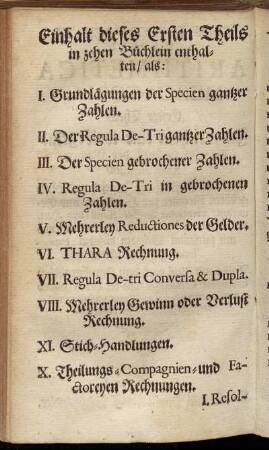 Einhalt dieses Ersten Theils
in zehen Büchlein enthal-
ten/ als:
I. Grundlägungen der Specien gantzer
Zahlen.
II. Der Regula De-Tri gantzer Zahlen.
III. Der Specien gebrochener Zahlen.
IV. Regula De-Tri in gebrochenen
Zahlen.
V. Mehrerley Reductiones der Gelder.
VI. THARA Rechnung.
VII. Regula De-tri Conversa & Dupla.
VIII. Mehrerley Gewinn oder Verlust
Rechnung.
XI. Stich-Handlungen.
X. Theilungs-Compagnien-und Fa-
ctoreyen Rechnungen.
I. Resol-